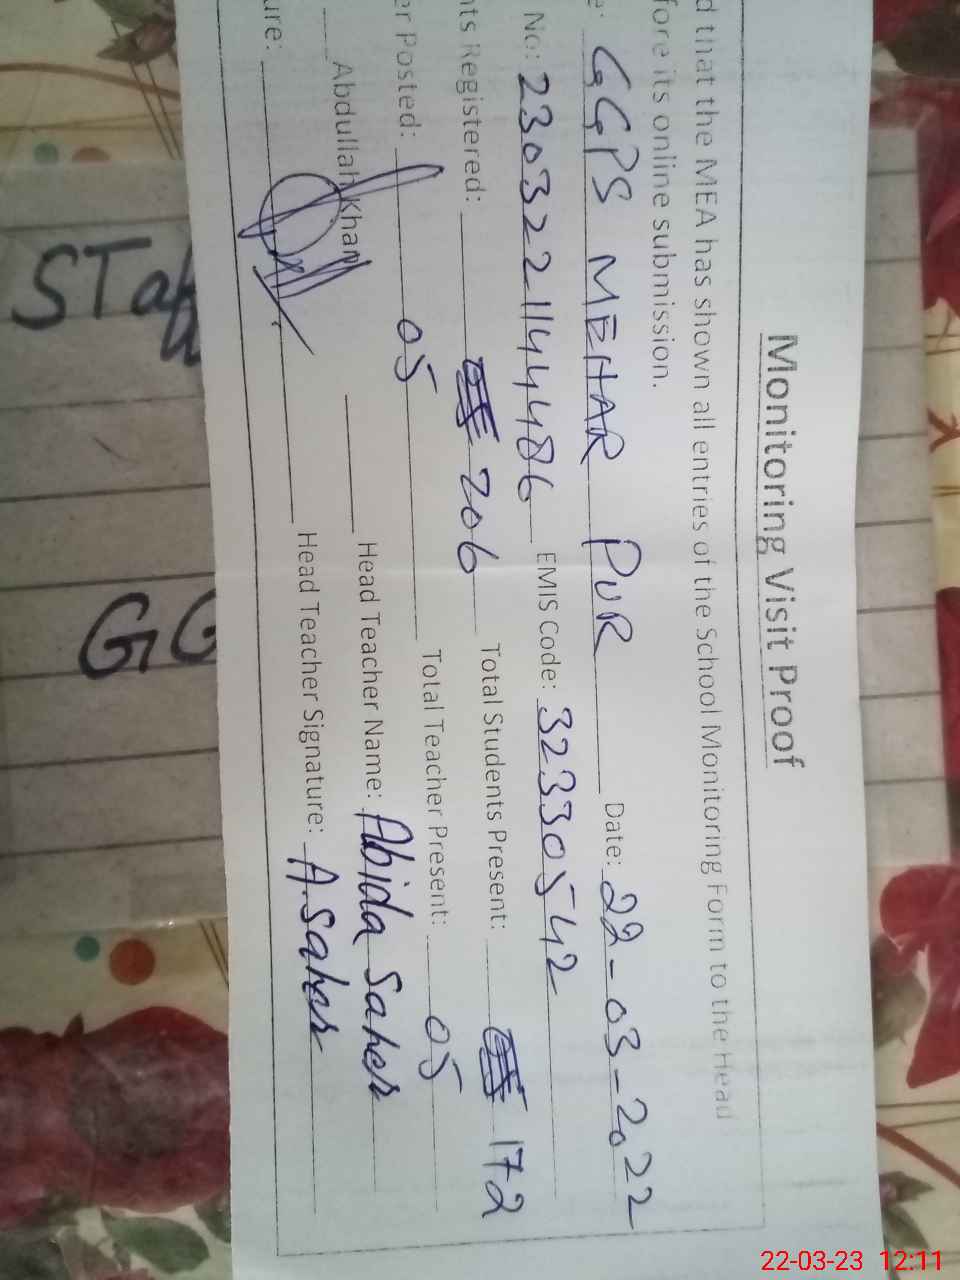 Monitoring Visit Proof
d that the MEA has shown all entries of the School Monitoring Form to the Head
fore its online submission.
e: GGPS MEHAR PUR Date: 22-03-2022
No: 23032211444486 EMIS Code: 32330542
nts Registered: 206 Total Students Present: 172
er Posted: 05 Total Teacher Present: 05
Abdullah Khan Head Teacher Name: Abida Saher
ure: Head Teacher Signature: A.Saher
STaff
GG
22-03-23 12:11